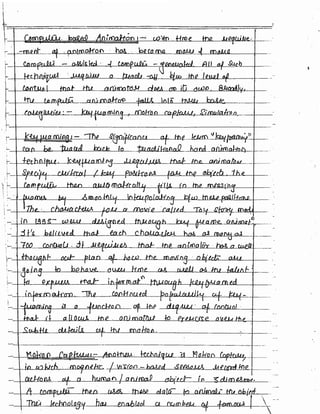 Computer based Animation :- With time the require-
-ment of animation has become more & more
computer - assisted & computer - generated. All of such
techniques require a trade-off b/w the level of
control that the animator does on its own. Broadly,
the computer animation falls into three basic
categories:- keyframing, motion capture, simulation.
Keyframing:- The significance of the term "keyframing"
can be traced back to traditional hand animation
technique. keyframing requires that the animator
specify critical / key positions for the objects. The
computer then automatically fills in the missing
frames by smoothly interpolating b/w those positions.
The characters for a movie called Toy Story made
in 1995 were designed through key frame animation.
It's believed that each character has as many as
700 controls. It requires that the animator has a well
thought out plan of how the moving objects are
going to behave over time as well as the talent
to express that information through keyframed
information. The continued popularity of key-
framing is a function of the degree of control
that it allows the animator to exercise over the
subtle details of the motion.
Motion Capture:- Another technique is Motion Capture,
in which magnetic / vision - based sensors record the
actions of a human / animal object in 3 dimension.
A computer then uses these data to animate the object.
This technology has enabled a number of famous